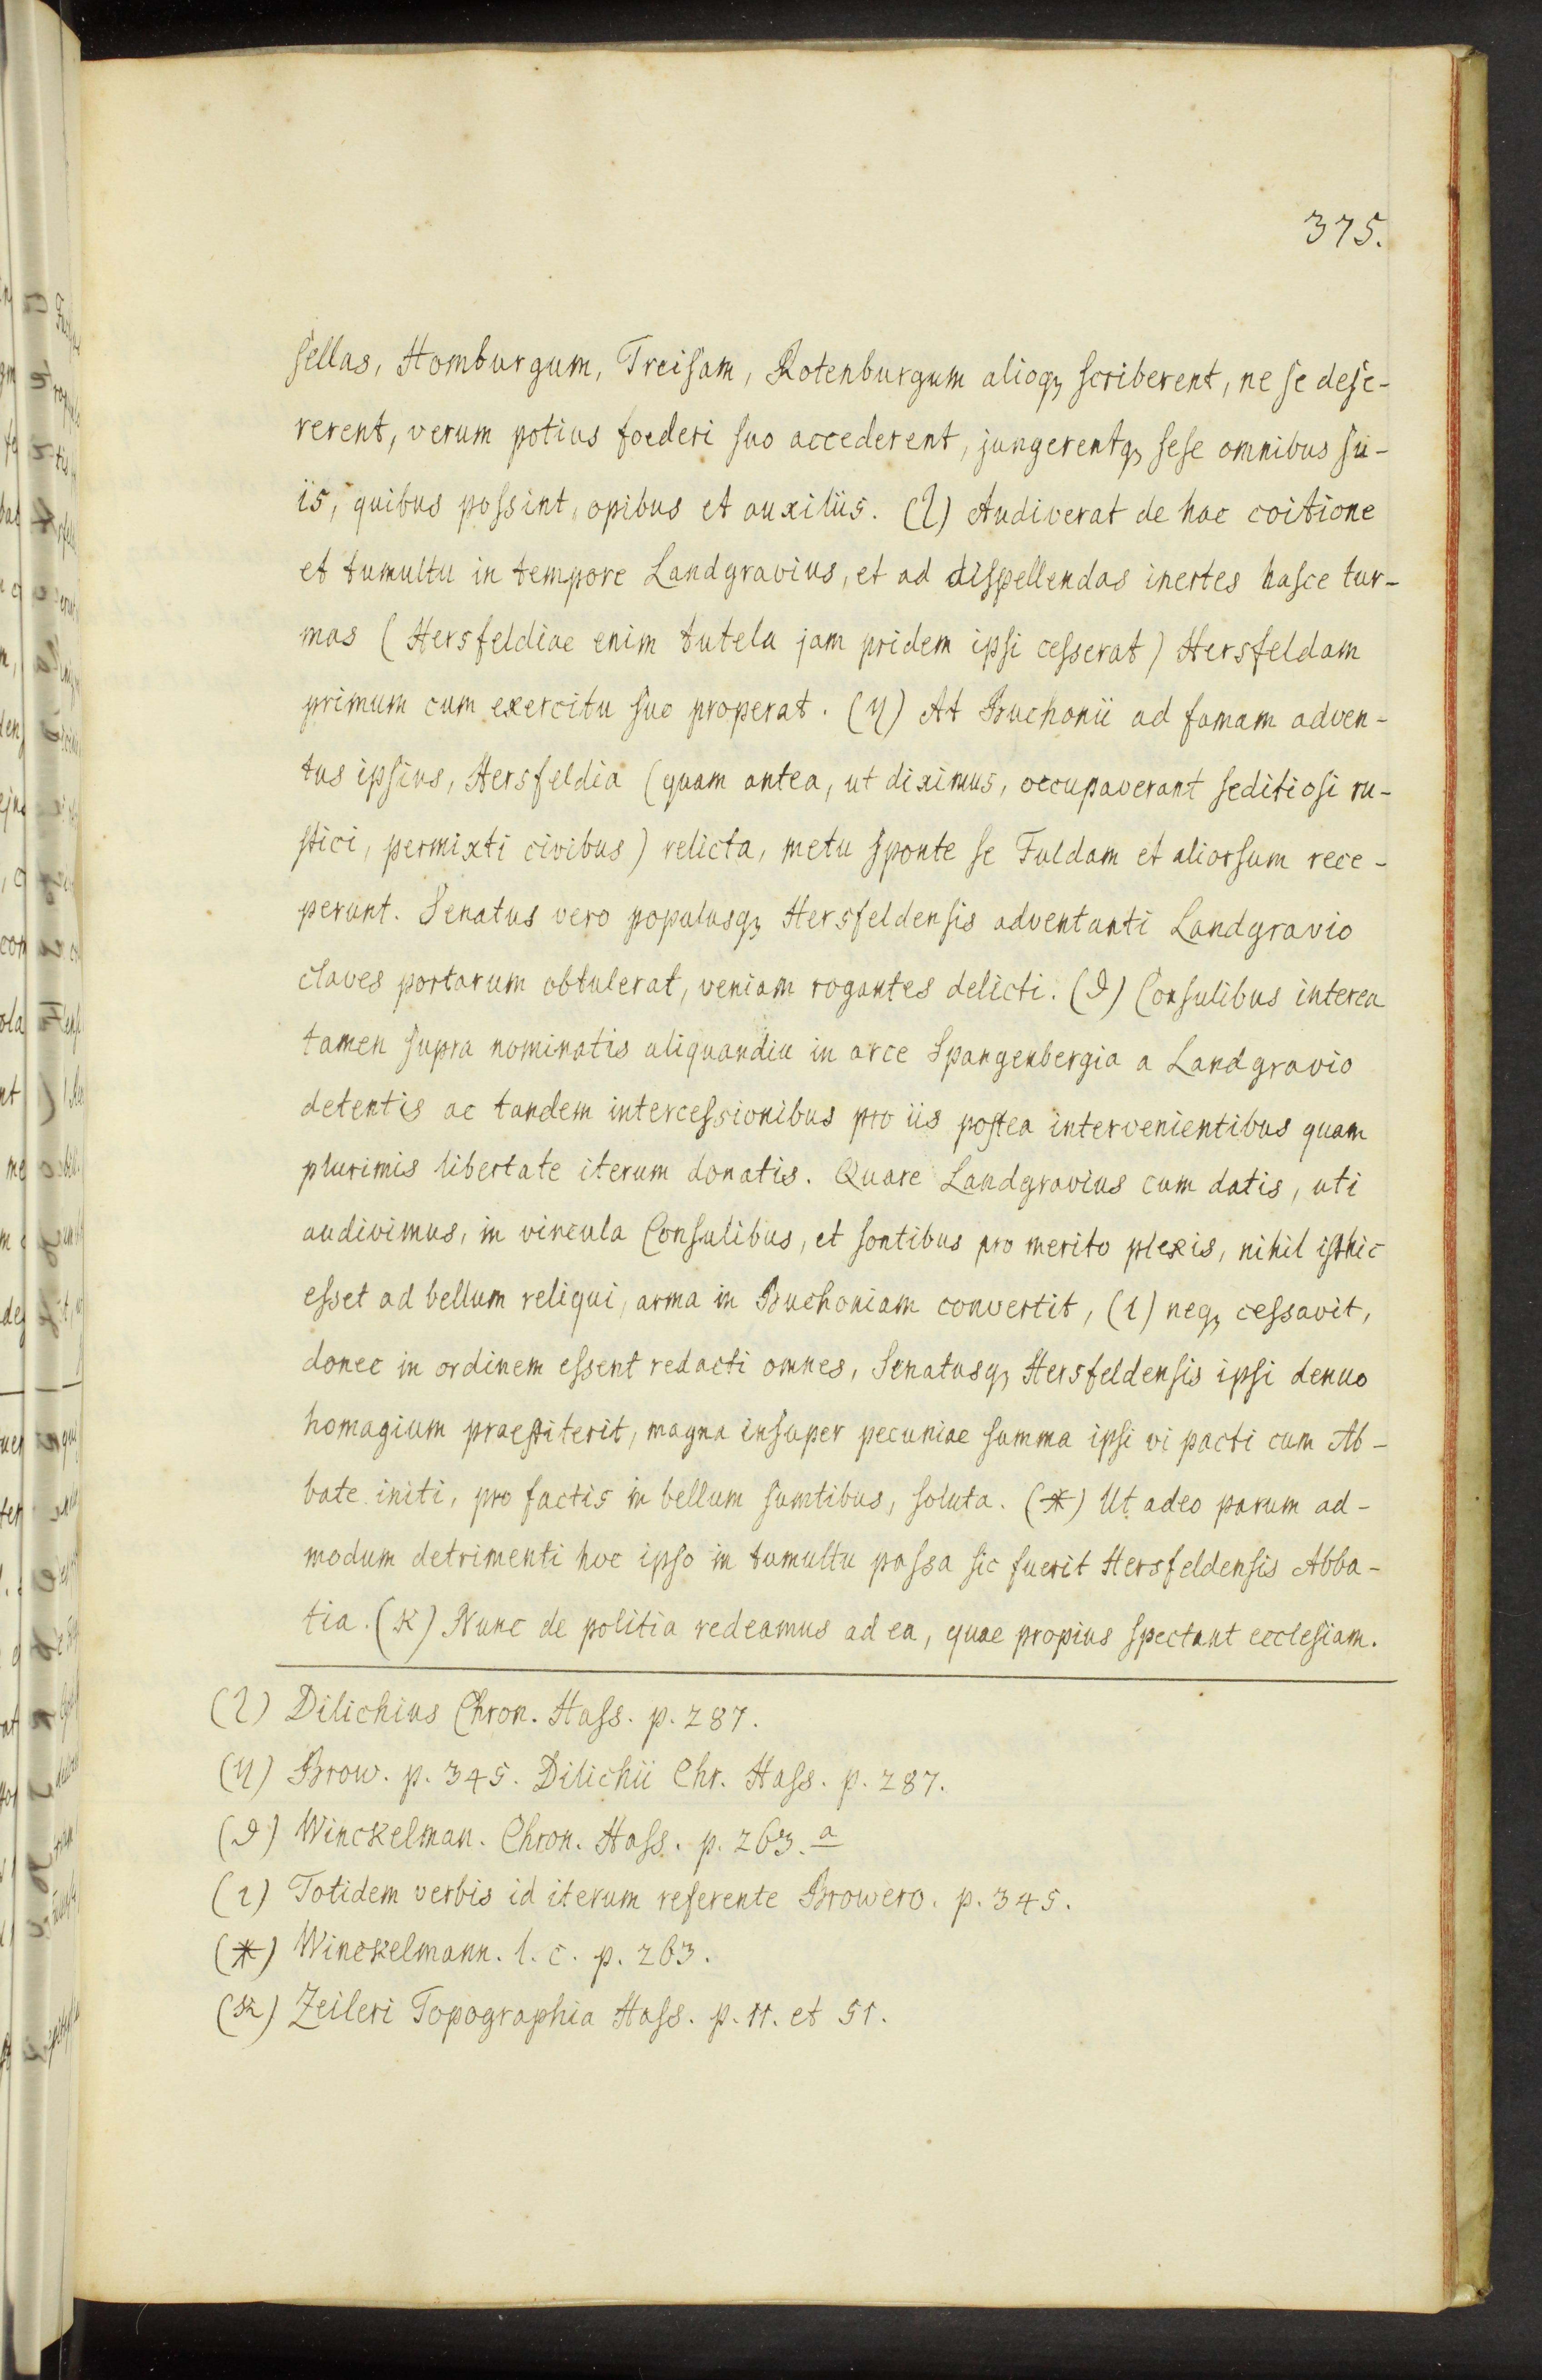 375.
sellas, Homburgum, Treisam, Rotenburgum alioq; scriberent, ne se dese-
rerent, verum potius foederi suo accederent, jungerentq; sese omnibus su-
iis, quibus possint, opibus et auxiliis. (ζ) Audiverat de hac coitione
et tumultu in tempore Landgravius, et ad dispellendas inertes hasce tur-
mas (Hersfeldiae enim tutela jam pridem ipsi cesserat) Hersfeldam
primum cum exercitu suo properat. (η) At Buchonii ad famam adven-
tus ipsius, Hersfeldia (quam antea, ut diximus, occupaverant seditiosi ru-
stici, permixti civibus) relicta, metu sponte se Fuldam et aliorsum rece-
perunt. Senatus vero populusq; Hersfeldensis adventanti Landgravio
claves portarum obtulerat, veniam rogantes delicti. (ϑ) Consulibus interea
tamen supra nominatis aliquandiu in arce Spangenbergia a Landgravio
detentis ac tandem intercessionibus pro iis postea intervenientibus quam
plurimis libertate iterum donatis. Quare Landgravius cum datis, uti
audivimus, in vincula Consulibus, et sontibus pro merito plexis, nihil isthic
esset ad bellum reliqui, arma in Buchoniam convertit, (ι) neq; cessavit,
donec in ordinem essent redacti omnes, Senatusq; Hersfeldensis ipsi denuo
homagium praestiterit, magna insuper pecuniae summa ipsi vi pacti cum Ab-
bate initi, pro factis in bellum sumtibus, soluta. (*) Ut adeo parum ad-
modum detrimenti hoc ipso in tumultu passa sic fuerit Hersfeldensis Abba-
tia. (κ) Nunc de politia redeamus ad ea, quae propius spectant ecclesiam.
(ζ) Dilichius Chron. Hass. p. 287.
(η) Brow. p. 345. Dilichii Chr. Hass. p. 287.
(ϑ) Winckelman. Chron. Hass. p. 263. a
(ι) Totidem verbis id iterum referente Browero. p. 345.
(*) Winckelmann. l. c. p. 263.
(κ) Zeileri Topographia Hass. p. 11. et 51.